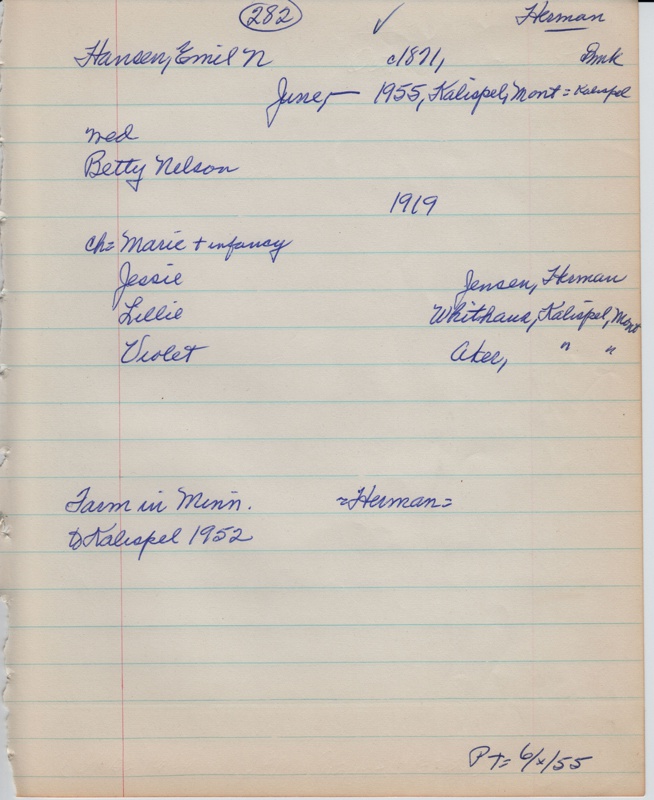 282 ✓ Herman
Hansen, Emil N c1871, Dmk
June, — 1955, Kalispel, Mont = Kalispel
wed
Betty Nelson
1919
ch = Marie + infancy
Jessie Jensen, Herman
Lillie Whithaus, Kalispel, Mont
Violet Aker, " "
Farm in Minn. =Herman=
to Kalispel 1952
P += 6/x/55